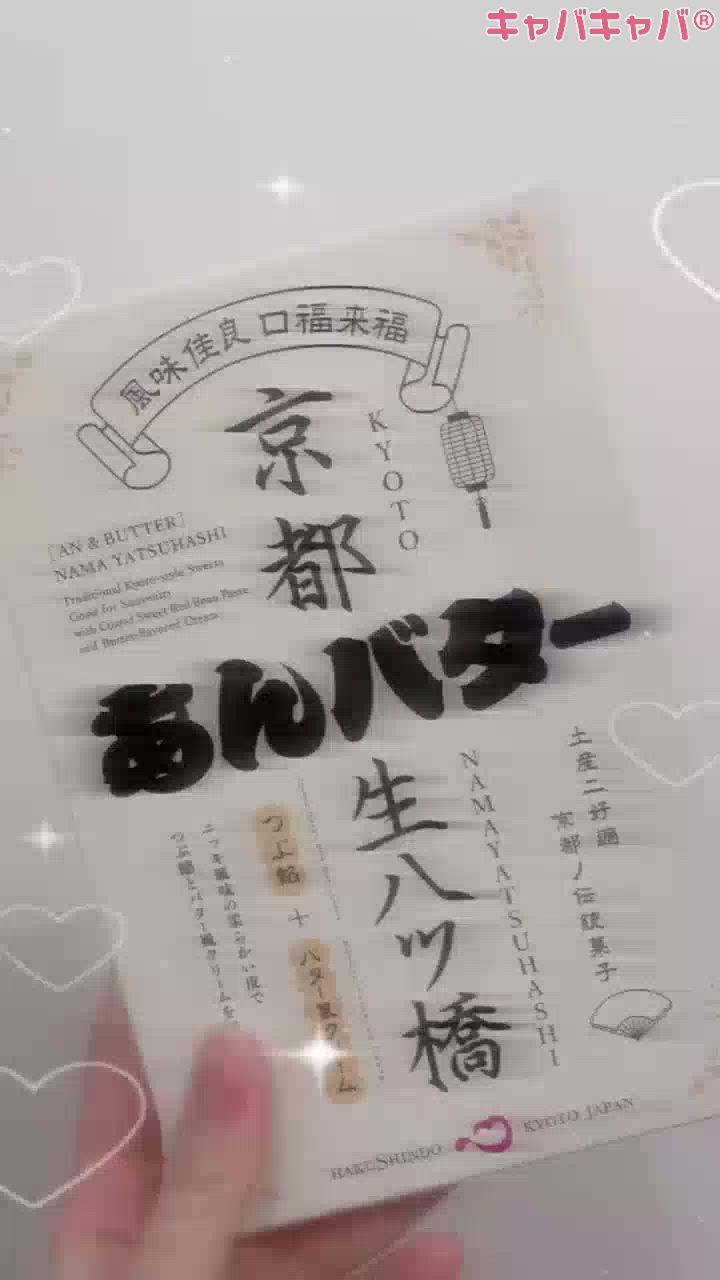 キャバキャバ®
風味佳良 口福来福
京都
KYOTO
[AN & BUTTER]
NAMA YATSUHASHI
Traditional Kyoto-style Sweets
Good for Souvenirs
with Coarse Sweet Red Bean Paste
and Butter-flavored Cream
あんバター
生八ツ橋
NAMAYATSUHASHI
土産ニ好適
京都ノ伝統菓子
つぶ餡
+
バター風クリーム
ニッキ風味の柔らかい皮で
つぶ餡とバター風クリームを
HAKUSHINDO
KYOTO JAPAN